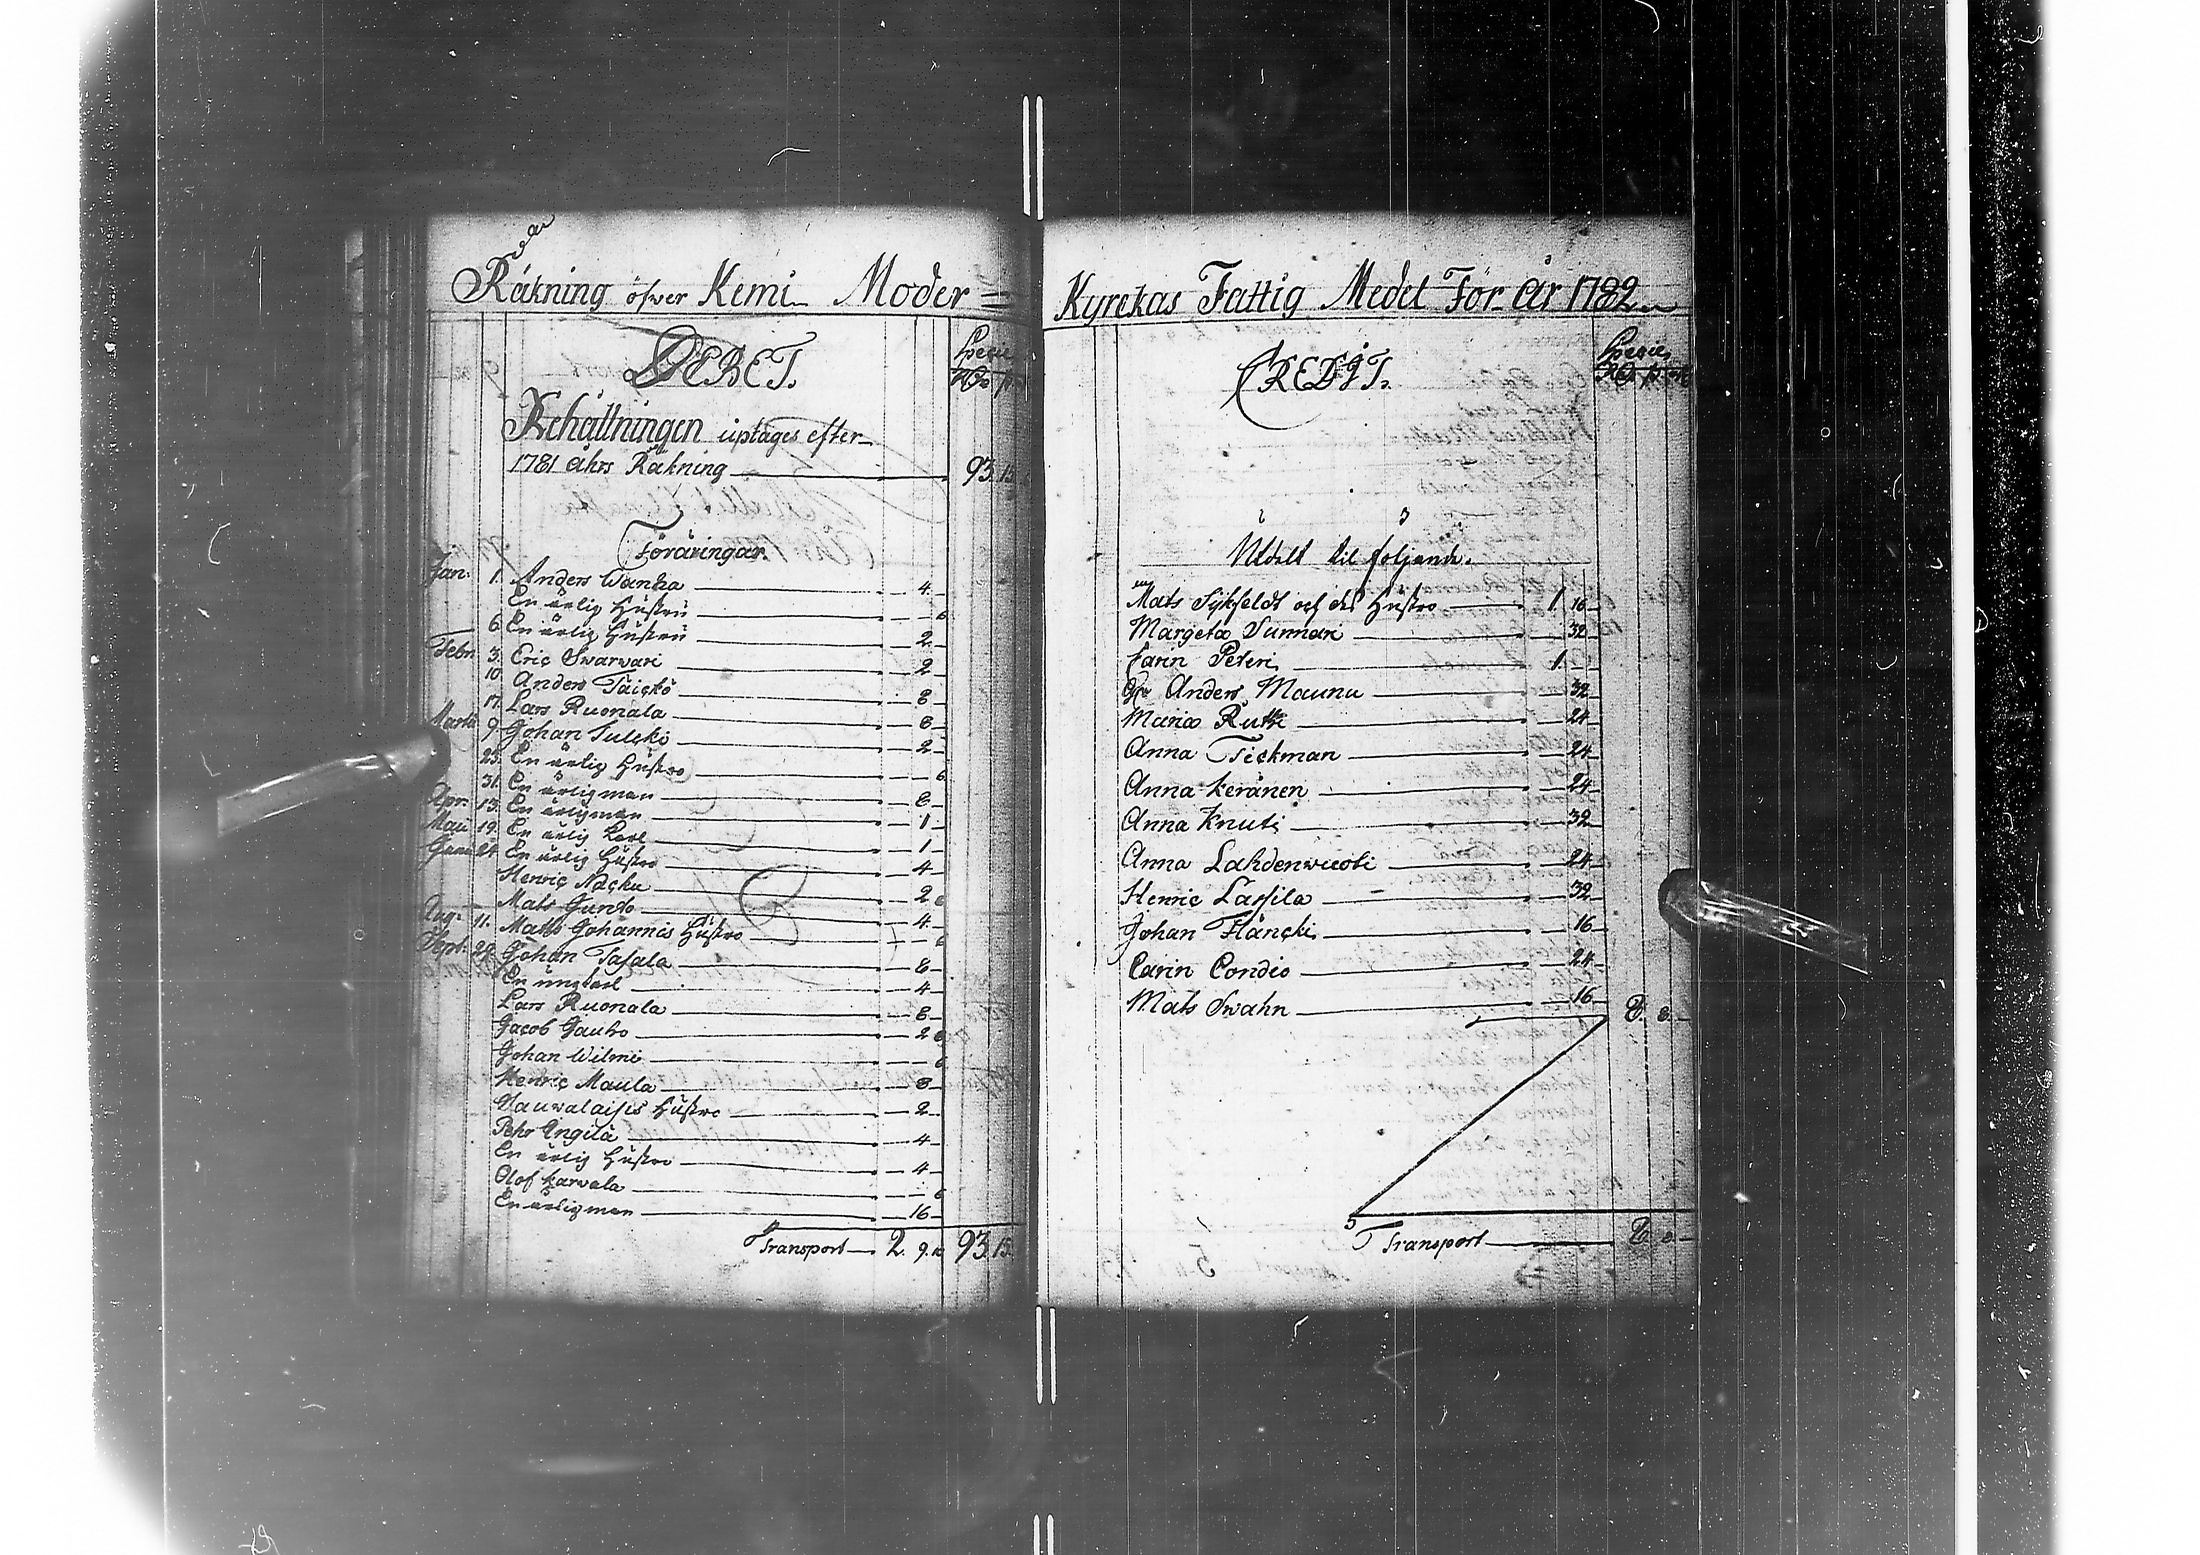 Räkning öfwer Kemi Moder =
DEBET.
Specie
Behållningen uptages efter
1781 åhrs Räkning 93. 15
Föräringar.
Jan. 1. Anders Wanha 4
En ärlig Hustru 6
6. En ärlig Hustru 2
Febr. 3. Eric Swarwari 2
10. Anders Täickö 8
17. Lars Ruonala 8
Martii 9. Johan Tulcki 2
23. En ärlig Hustro 6
31. En ärlig man 8
Apr. 13. En ärlig man 1
Maii 19. En ärlig karl 1
24. En ärlig Hustro 4
Henric Näcku 2 6
Mats Jundo 4
Aug. 11. Matts Johannis Hustro 6
Sept. 29. Johan Tafala 8
En ung karl 4
Lars Ruonala 8
Jacob Jauho 2 6
Johan Wilmi 6
Henric Maula 8
Vauwalaisis Hustro 2
Pehr Ångilä 4
En ärlig Hustro 4
Olof Karwala 6
En ärlig man 16
Transport 2. 9. 93. 15.
Kyrckas Fattig Medel För år 1782
CREDIT.
Specie
Utdelt til följande.
Mats Sykfeldt och des Hustro 1 16
Margeta Sunnari 32
Carin Peteri 1
Anders Maunu 32
Maria Rutti 24
Anna Tickman 24
Anna Keränen 24
Anna Knuti 32
Anna Lahdenwuoti 24
Henric Lassila 32
Johan Fläncki 16
Carin Condio 24
Mats Swahn 16 8. 8.
Transport 8. 8.